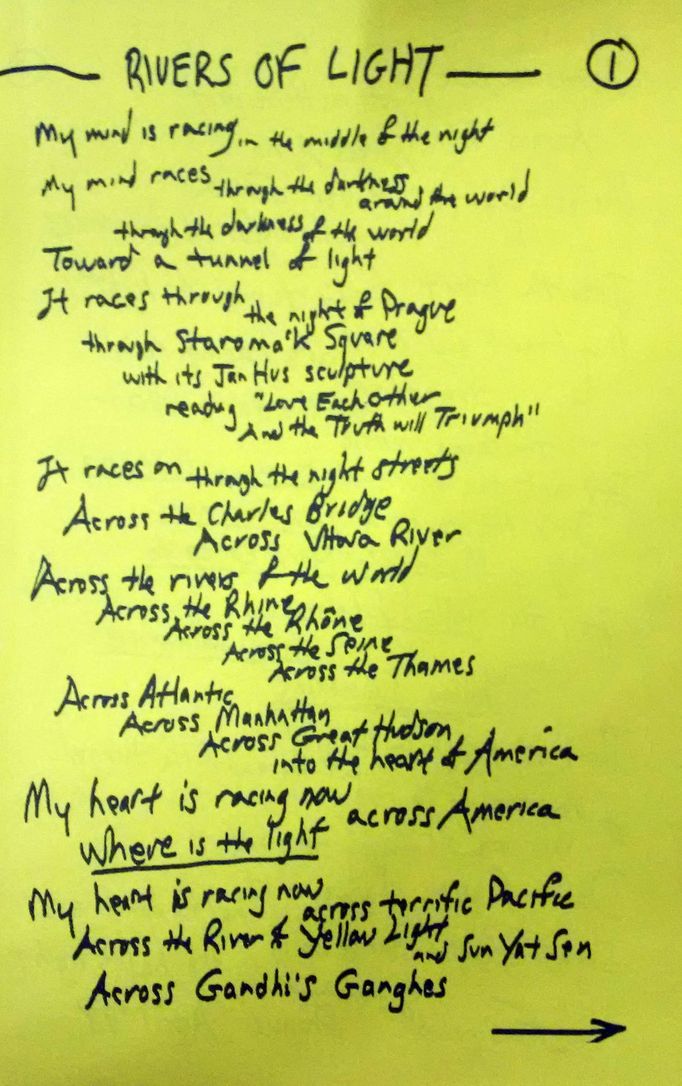 RIVERS OF LIGHT ①
My mind is racing in the middle of the night
My mind races through the darkness around the world
through the darkness of the world
Toward a tunnel of light
It races through the night of Prague
through Staroma'k Square
with its Jan Hus sculpture
reading "Love Each Other
And the Truth will Triumph"
It races on through the night streets
Across the Charles Bridge
Across Vltava River
Across the rivers of the world
Across the Rhine
Across the Rhône
Across the Seine
Across the Thames
Across Atlantic
Across Manhattan
Across Great Hudson
into the heart of America
My heart is racing now across America
Where is the light
My heart is racing now across terrific Pacific
Across the River of Yellow Light and Sun Yat Sen
Across Gandhi's Ganghes